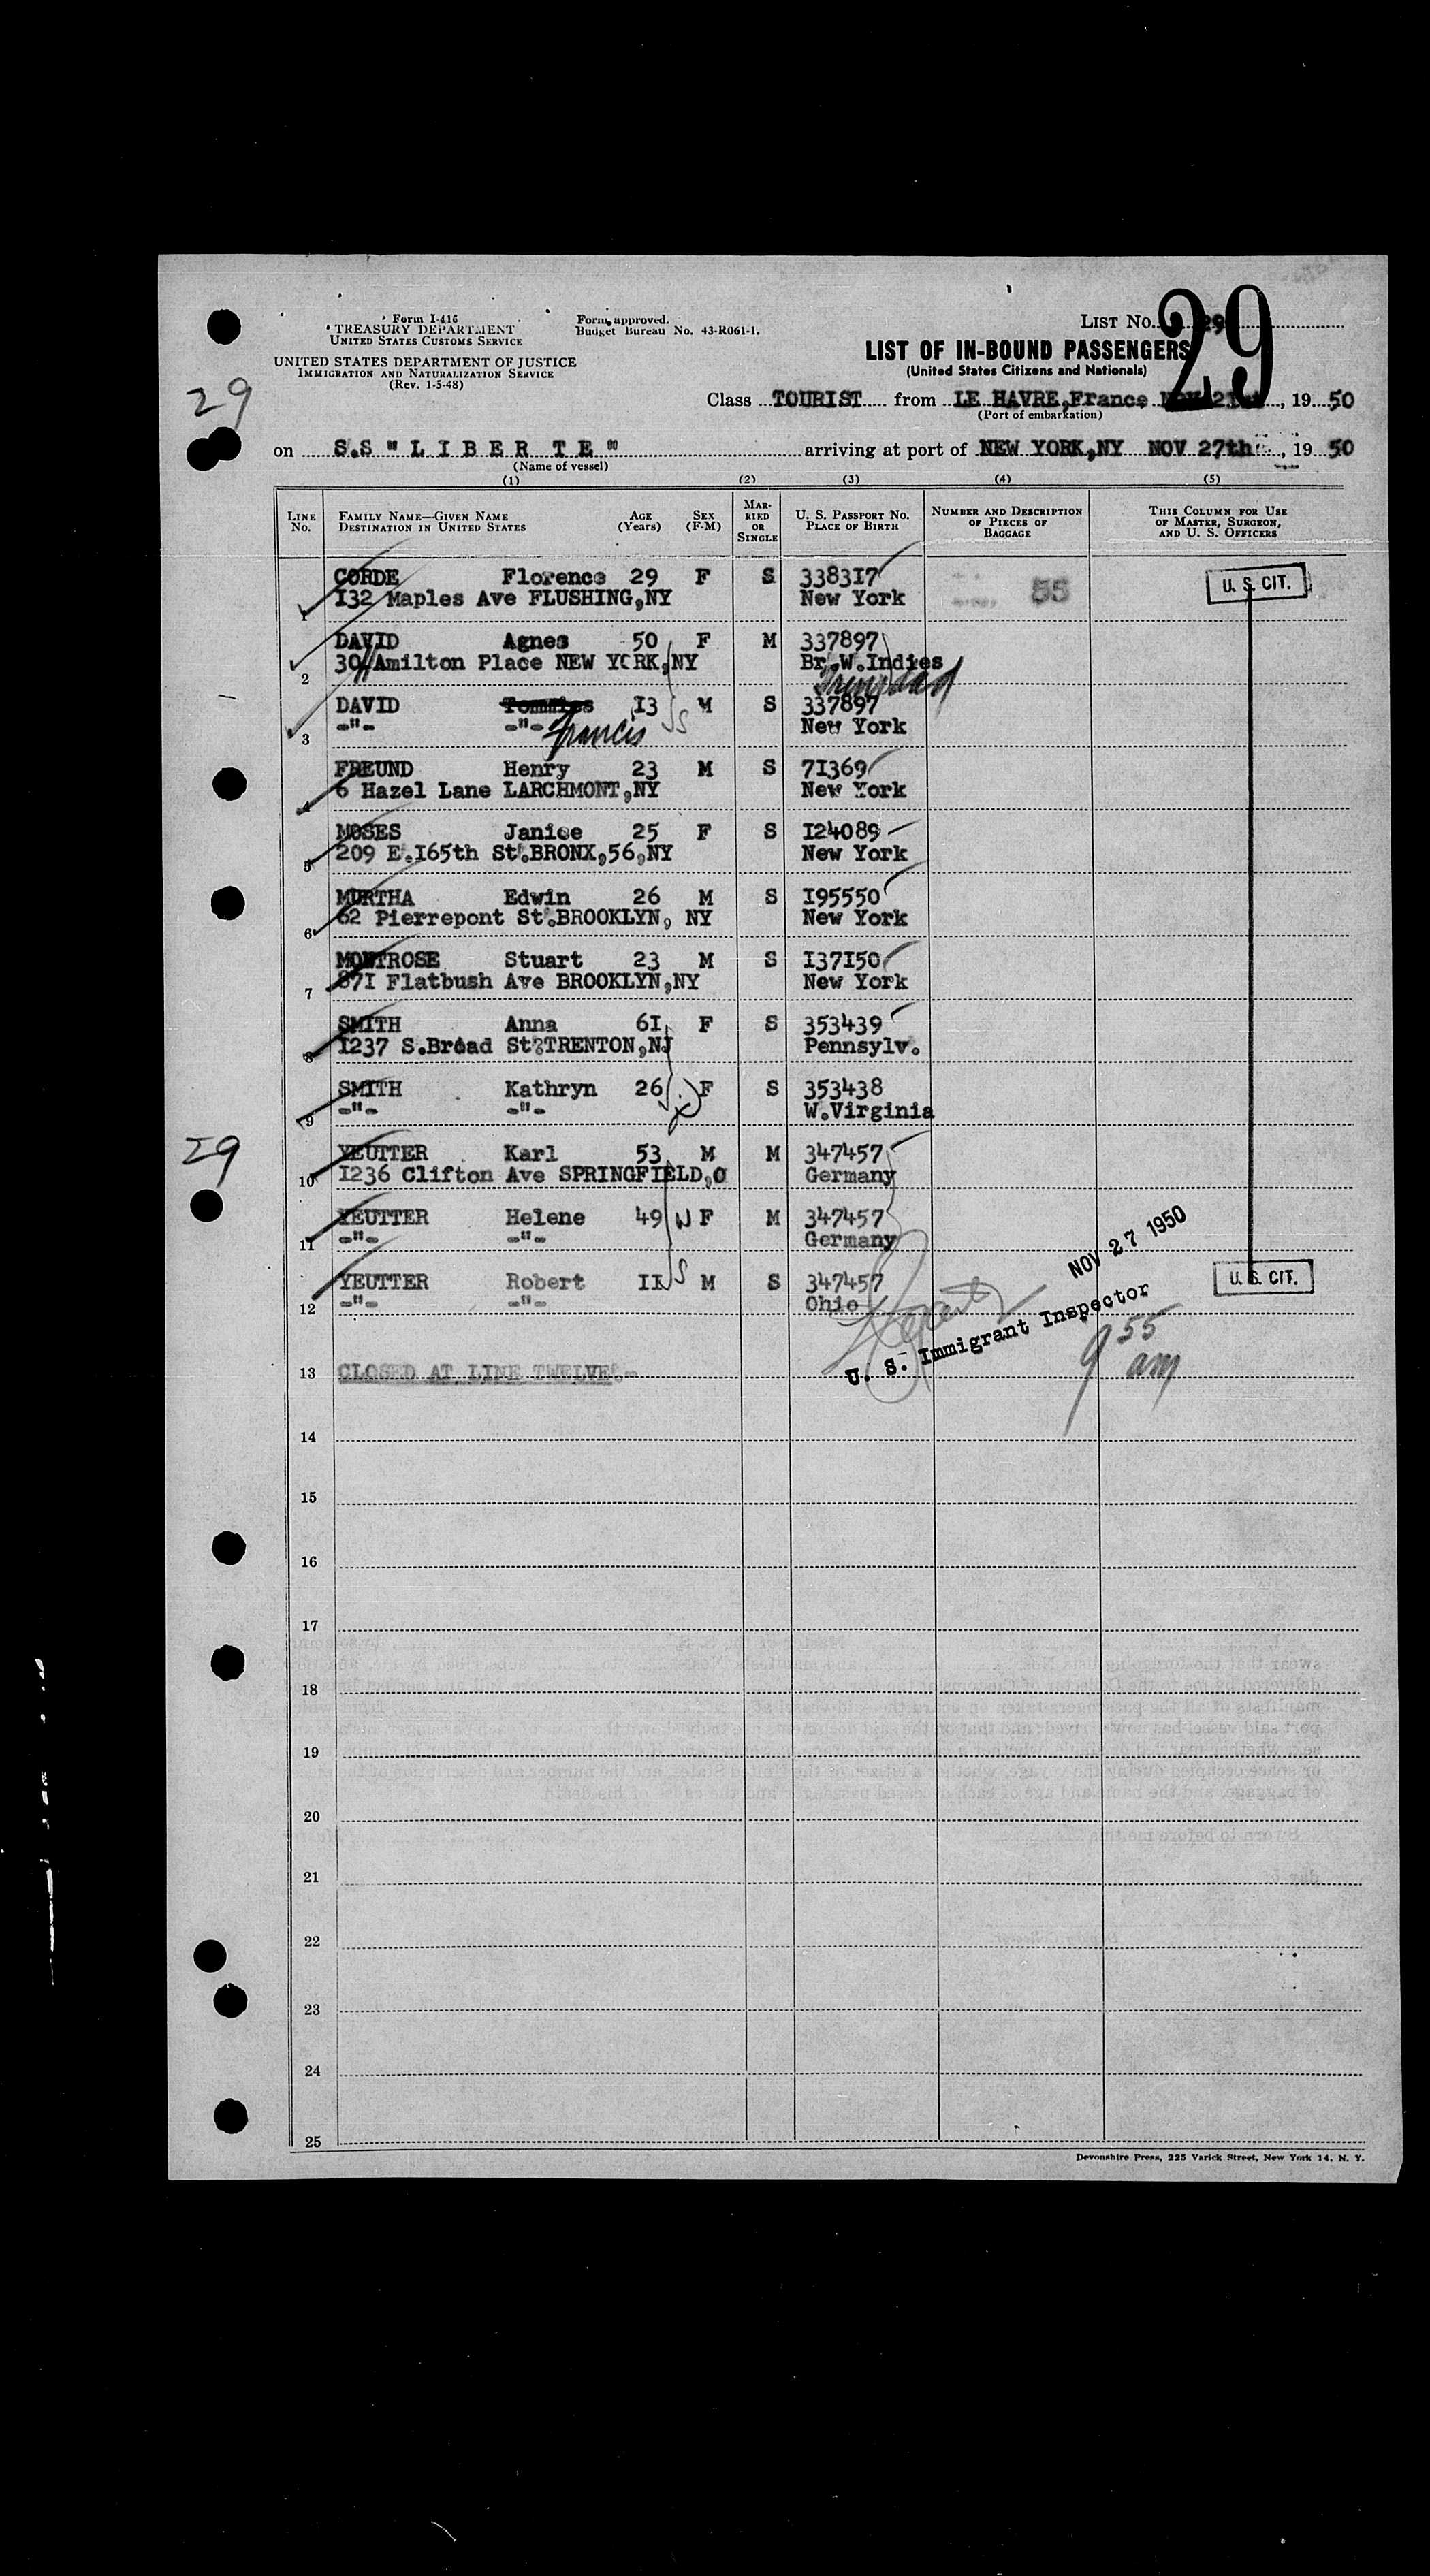 Form I-416
TREASURY DEPARTMENT
UNITED STATES CUSTOMS SERVICE
UNITED STATES DEPARTMENT OF JUSTICE
IMMIGRATION AND NATURALIZATION SERVICE
(Rev. 1-5-48)
Form approved.
Budget Bureau No. 43-R061-1.
LIST No. 29
29
LIST OF IN-BOUND PASSENGERS
(United States Citizens and Nationals)
29
Class TOURIST from LE HAVRE,France NOV 21st, 19 50
(Port of embarkation)
on S.S "L I B E R T E" arriving at port of NEW YORK,NY NOV 27th, 19 50
(Name of vessel)
(1) (2) (3) (4) (5)
LINE No. FAMILY NAME—GIVEN NAME DESTINATION IN UNITED STATES AGE (Years) SEX (F-M) MARRIED OR SINGLE U. S. PASSPORT No. PLACE OF BIRTH NUMBER AND DESCRIPTION OF PIECES OF BAGGAGE THIS COLUMN FOR USE OF MASTER, SURGEON, AND U. S. OFFICERS
CORDE Florence 29 F S 338317 55 U. S. CIT.
1 132 Maples Ave FLUSHING,NY New York
DAVID Agnes 50 F M 337897
2 30 Amilton Place NEW YORK,NY Br.W.Indies
Trinidad
DAVID Tommies 13 M S 337897
3 -"- -"- Francis S New York
FREUND Henry 23 M S 71369
4 6 Hazel Lane LARCHMONT,NY New York
MOSES Janice 25 F S 124089
5 209 E.165th St.BRONX,56,NY New York
MURTHA Edwin 26 M S 195550
6 62 Pierrepont St.BROOKLYN, NY New York
MONTROSE Stuart 23 M S 137150
7 871 Flatbush Ave BROOKLYN,NY New York
SMITH Anna 61 F S 353439
8 1237 S.Broad St.TRENTON,NJ Pennsylv.
SMITH Kathryn 26 D F S 353438
9 -"- -"- W.Virginia
29
YEUTTER Karl 53 M M 347457
10 1236 Clifton Ave SPRINGFIELD,O Germany
YEUTTER Helene 49 W F M 347457
11 -"- -"- Germany
NOV 27 1950
YEUTTER Robert 11 S M S 347457 U. S. CIT.
12 -"- -"- Ohio
U. S. Immigrant Inspector
9 55 am
13 CLOSED AT LINE TWELVE.-
14
15
16
17
18
19
20
21
22
23
24
25
Devonshire Press, 225 Varick Street, New York 14, N. Y.